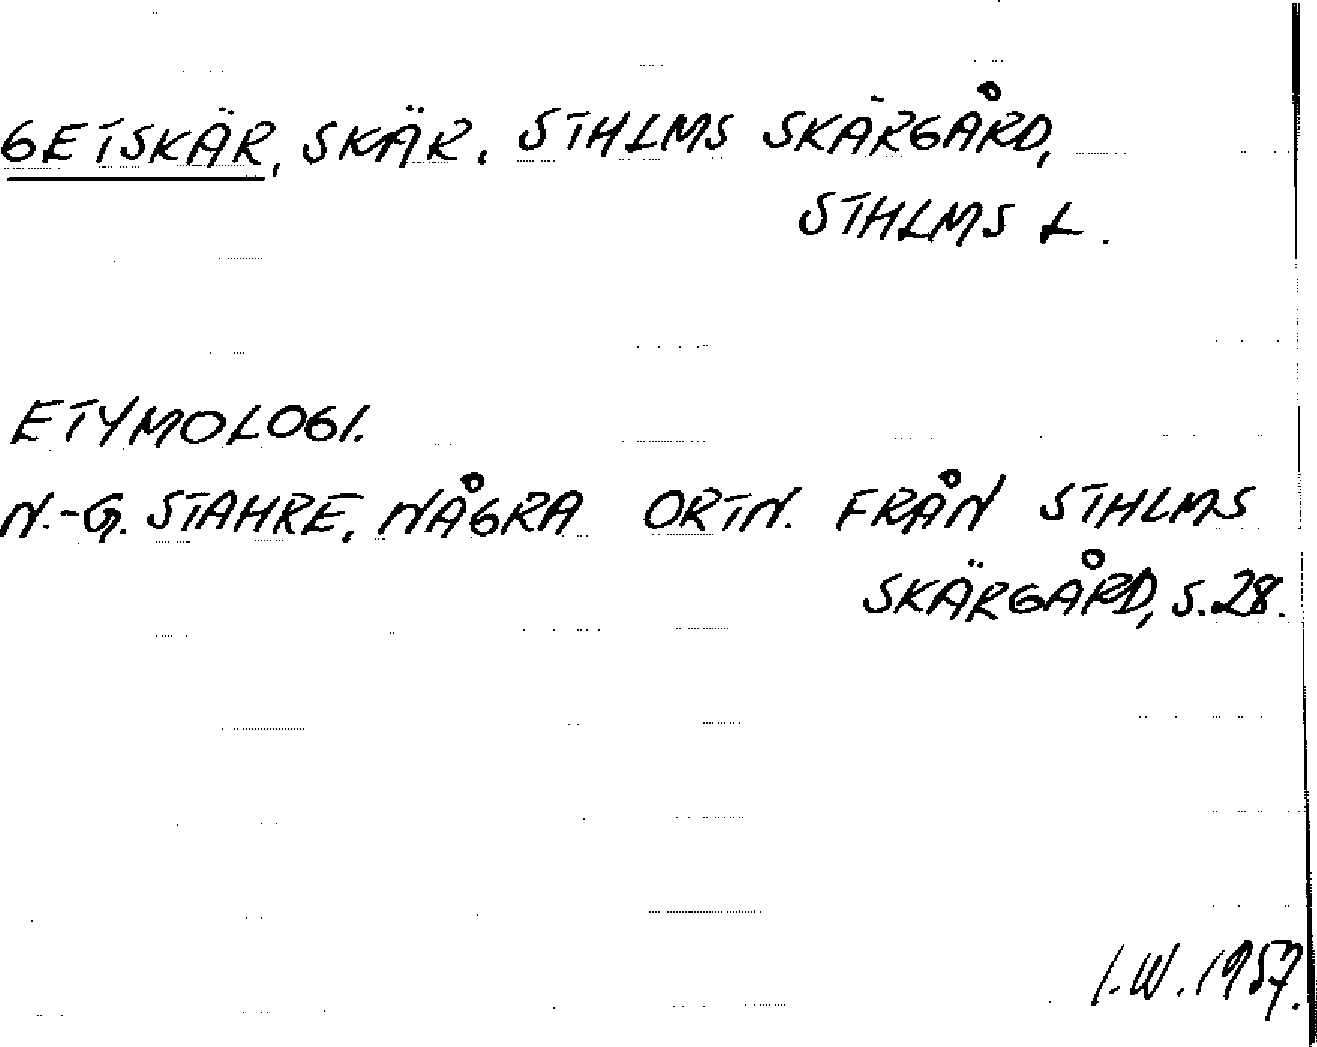 GETSKÄR, SKÄR. STHLMS SKÄRGÅRD,
STHLMS L.
ETYMOLOGI.
N.-G. STAHRE, NÅGRA ORTN. FRÅN STHLMS
SKÄRGÅRD, S.28.
I.W. 1957.